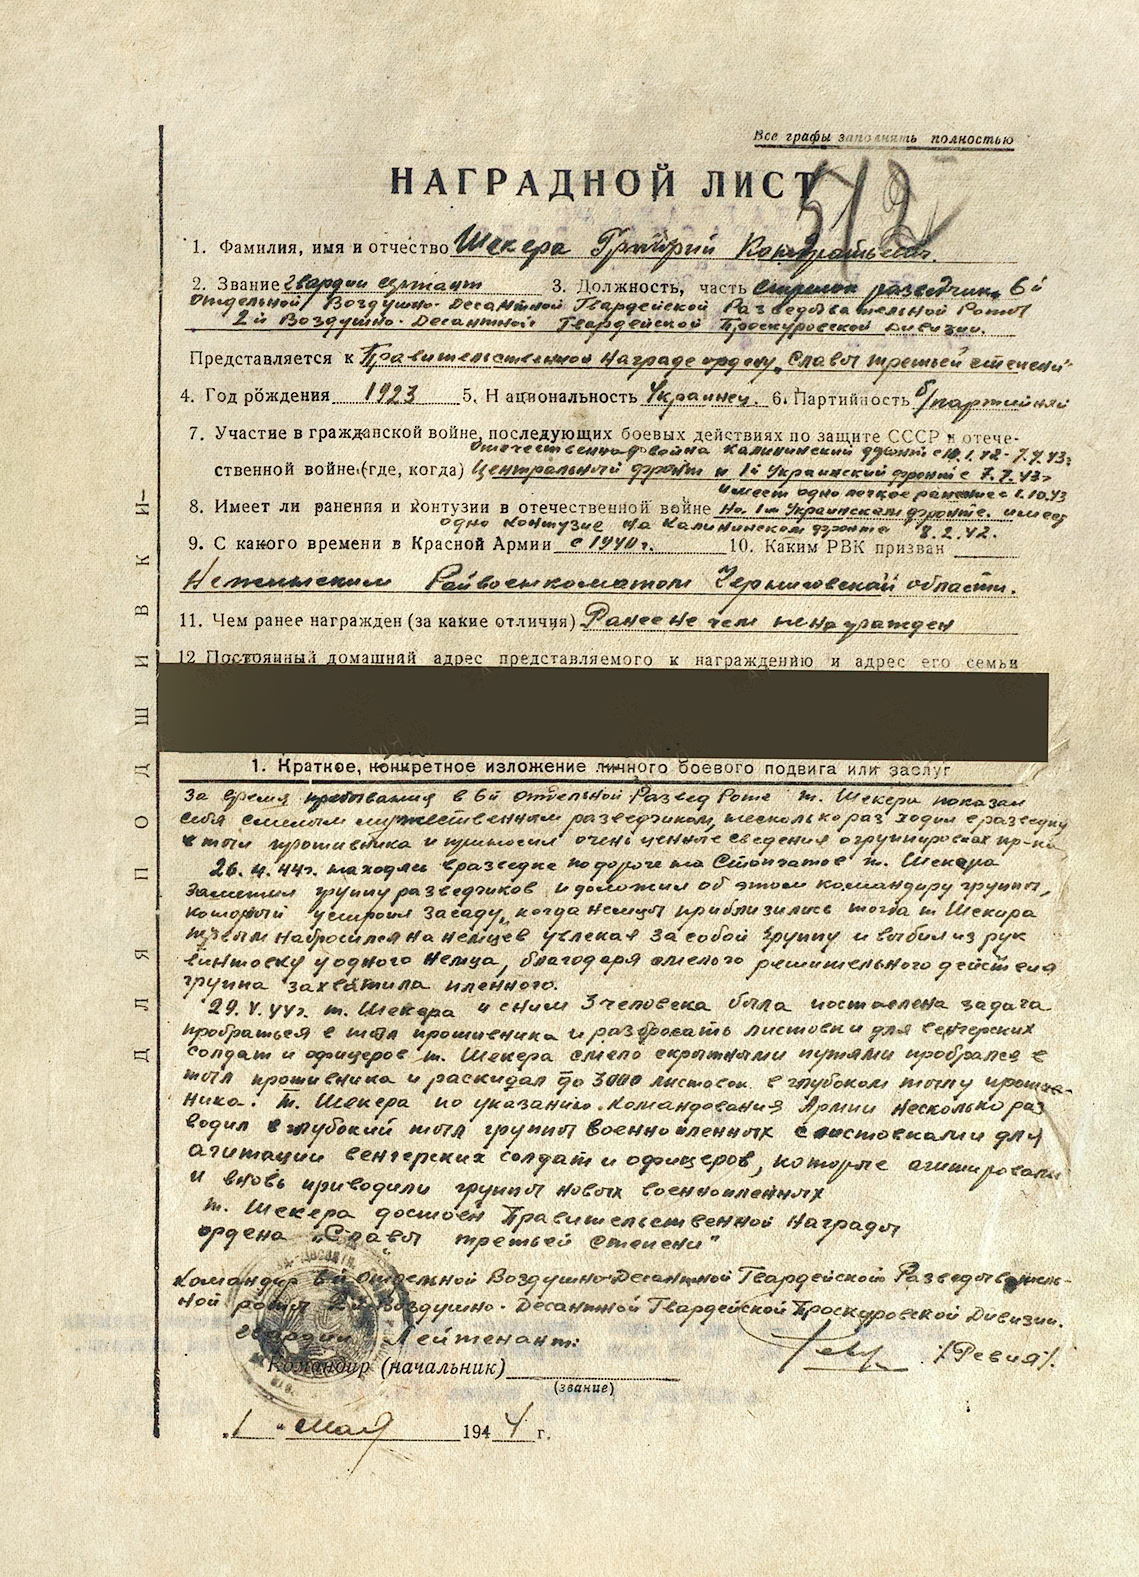 Все графы заполнять полностью
НАГРАДНОЙ ЛИСТ
512
1. Фамилия, имя и отчество Шекера Григорий Кондратьевич.
2. Звание гвардии сержант 3. Должность, часть стрелок разведчик, 6й
отдельной Воздушно-Десантной Гвардейской Разведывательной Роты
2й Воздушно-Десантной Гвардейской Проскуровской Дивизии.
Представляется к Правительственной Награде ордену "Славы третьей степени"
4. Год рождения 1923 5. Национальность Украинец. 6. Партийность б/партийный
7. Участие в гражданской войне, последующих боевых действиях по защите СССР и отече-
отечественно-война Калининский фронт с 10.1.42-7.7.43г
ственной войне (где, когда) Центральный фронт и 1й Украинский фронт с 7.7.43г
имеет одно легкое ранение с 1.10.43
8. Имеет ли ранения и контузии в отечественной войне на 1м Украинском фронте. имеет
одно контузие на Калининском фронте 8.2.42.
9. С какого времени в Красной Армии с 1940г. 10. Каким РВК призван
Нежинским Райвоенкоматом Черниговской области.
11. Чем ранее награжден (за какие отличия) Ранее не чем не награжден
12 Постоянный домашний адрес представляемого к награждению и адрес его семьи
ДЛЯ ПОДШИВКИ
1. Краткое, конкретное изложение личного боевого подвига или заслуг
За время пребывания в 6й отдельной Развед Роте т. Шекера показал
себя смелым мужественным разведчиком, несколько раз ходил в разведку
в тыл противника и приносил очень ценные сведения о группировках пр-ка
26.4.44г. находясь в разведке по дороге на Стопчатов т. Шекера
заметил группу разведчиков и доложил об этом командиру группы,
который устроил засаду, когда немцы приблизились тогда т. Шекира
первым набросился на немцев увлекая за собой группу и выбил из рук
винтовку у одного немца, благодаря смелого решительного действия
группа захватила пленного.
29.V.44г. т. Шекера и с ним 3 человека была поставлена задача
пробраться в тыл противника и разбросать листовки для венгерских
солдат и офицеров т. Шекера смело скрытными путями пробрался в
тыл противника и раскидал до 3000 листовок в глубоком тылу против-
ника. Т. Шекера по указанию командования Армии несколько раз
водил в глубокий тыл группы военнопленных с листовками для
агитации венгерских солдат и офицеров, которые агитировали
и вновь приводили группы новых военнопленных
т. Шекера достоен Правительственной Награды
ордена "Славы третьей степени"
Командир 6й отдельной Воздушно-Десантной Гвардейской Разведователь-
ной роты 2й Воздушно-Десантной Гвардейской Проскуровской Дивизии.
Гвардии Лейтенант: /Ревия/.
Командир (начальник)
(звание)
"1" Мая 1944 г.